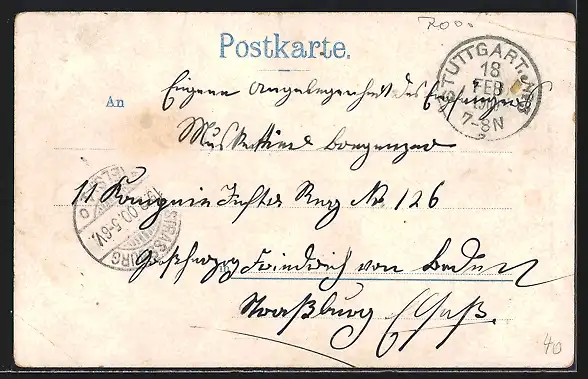 700.
Postkarte.
STUTTGART
18
FEB
7-8N
An
Eigene Angelegenheit des Empfängers
Musketier
11 Kompanie Inftr Reg No. 126
Großherzog Friedrich von Baden
STRASSBURG
00.5-6V.
Straßburg Elsaß.
40